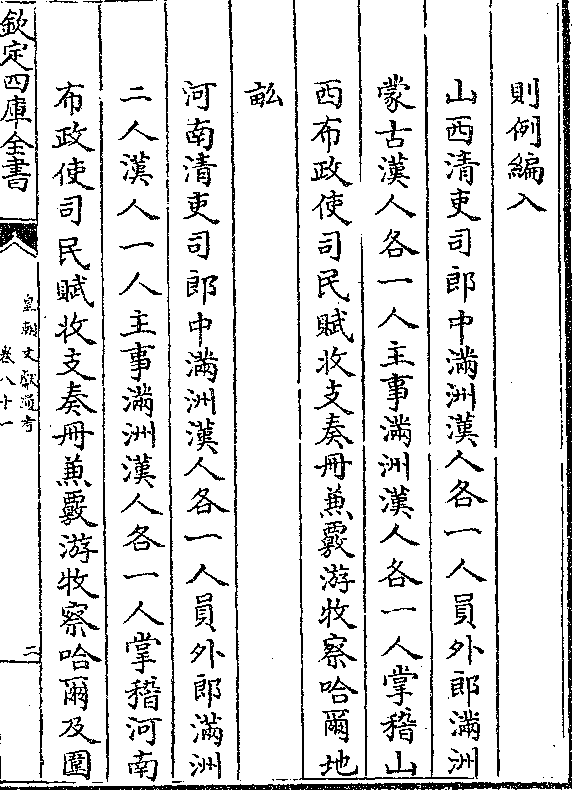 則例編入
山西清吏司郎中滿洲漢人各一人員外郎滿洲
蒙古漢人各一人主事滿洲漢人各一人掌稽山
西布政使司民賦收支奏冊兼覈游牧察哈爾地
畝
河南清吏司郎中滿洲漢人各一人員外郎滿洲
二人漢人一人主事滿洲漢人各一人掌稽河南
布政使司民賦收支奏冊兼覈游牧察哈爾及圍
欽定四庫全書
皇朝文獻通考
卷八十一
二